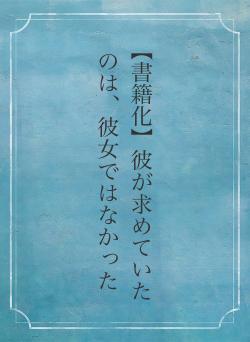 【書籍化】彼が求めていた
のは、彼女ではなかった